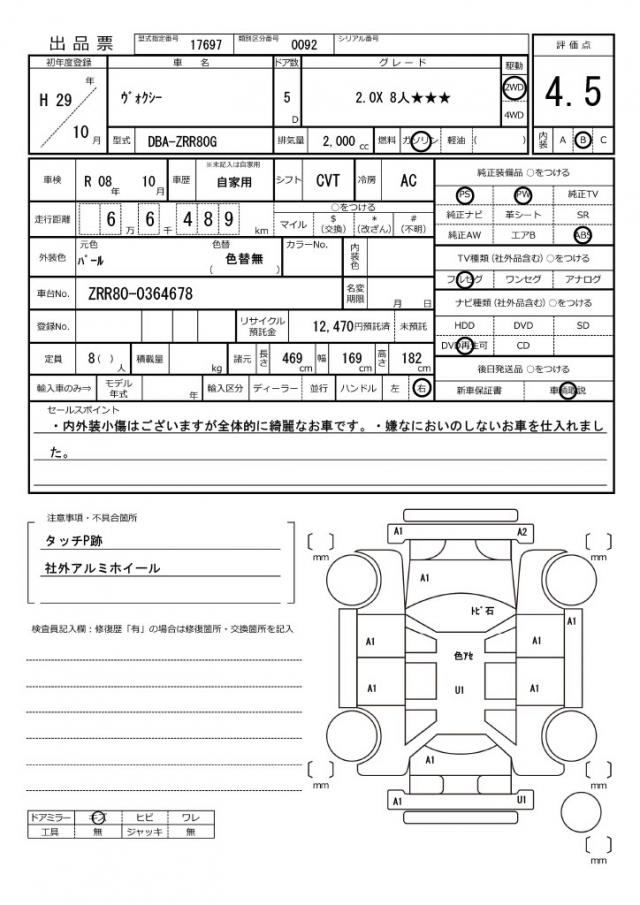 出品票 型式指定番号 17697 類別区分番号 0092 シリアル番号
評価点
4.5
内装 A B C
初年度登録 車名 ドア数 グレード 駆動
H 29 年 10 月 ヴォクシー 5 D 2.0X 8人★★★ 2WD 4WD
型式 DBA-ZRR80G 排気量 2,000 cc 燃料 ガソリン 軽油 ( )
車検 R 08 年 10 月 車歴 ※未記入は自家用 自家用 シフト CVT 冷房 AC
走行距離 6 万 6 千 4 8 9 km
○をつける
マイル $ (交換) * (改ざん) # (不明)
外装色 元色 パール 色替 ( 色替無 ) カラーNo. 内装色
車台No. ZRR80-0364678 名変期限 月 日
登録No. リサイクル預託金 12,470 円預託済 未預託
定員 8 ( ) 人 積載量 kg 諸元 長さ 469 cm 幅 169 cm 高さ 182 cm
輸入車のみ⇒ モデル年式 年 輸入区分 ディーラー 並行 ハンドル 左 右
純正装備品 ○をつける
PS PW 純正TV
純正ナビ 革シート SR
純正AW エアB ABS
TV種類 (社外品含む) ○をつける
フルセグ ワンセグ アナログ
ナビ種類 (社外品含む) ○をつける
HDD DVD SD
DVD再生可 CD
後日発送品 ○をつける
新車保証書 車輌取説
セールスポイント
・内外装小傷はございますが全体的に綺麗なお車です。・嫌なにおいのしないお車を仕入れまし
た。
注意事項・不具合箇所
タッチP跡
社外アルミホイール
検査員記入欄：修復歴「有」の場合は修復箇所・交換箇所を記入
ドアミラー キズ ヒビ ワレ
工具 無 ジャッキ 無
A1 A2
mm mm
A1
トビ石
A1 A1 A1
色アセ
A1 U1 A1
A1
mm mm
A1 U1
mm